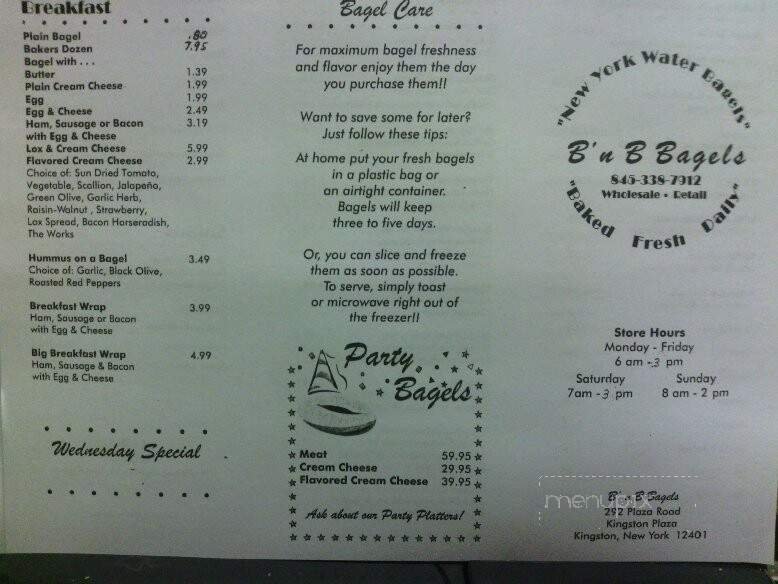 Breakfast
Plain Bagel .80
Bakers Dozen 7.95
Bagel with . . .
Butter 1.39
Plain Cream Cheese 1.99
Egg 1.99
Egg & Cheese 2.49
Ham, Sausage or Bacon 3.19
with Egg & Cheese
Lox & Cream Cheese 5.99
Flavored Cream Cheese 2.99
Choice of: Sun Dried Tomato,
Vegetable, Scallion, Jalapeño,
Green Olive, Garlic Herb,
Raisin-Walnut , Strawberry,
Lox Spread, Bacon Horseradish,
The Works
Hummus on a Bagel 3.49
Choice of: Garlic, Black Olive,
Roasted Red Peppers
Breakfast Wrap 3.99
Ham, Sausage or Bacon
with Egg & Cheese
Big Breakfast Wrap 4.99
Ham, Sausage & Bacon
with Egg & Cheese
Wednesday Special
Bagel Care
For maximum bagel freshness
and flavor enjoy them the day
you purchase them!!
Want to save some for later?
Just follow these tips:
At home put your fresh bagels
in a plastic bag or
an airtight container.
Bagels will keep
three to five days.
Or, you can slice and freeze
them as soon as possible.
To serve, simply toast
or microwave right out of
the freezer!!
Party
Bagels
Meat 59.95
Cream Cheese 29.95
Flavored Cream Cheese 39.95
Ask about our Party Platters!
"New York Water Bagels"
B'n B Bagels
845-338-7912
Wholesale • Retail
"Baked Fresh Daily"
Store Hours
Monday - Friday
6 am -3 pm
Saturday Sunday
7am -3 pm 8 am - 2 pm
menupix
B'n B Bagels
292 Plaza Road
Kingston Plaza
Kingston, New York 12401